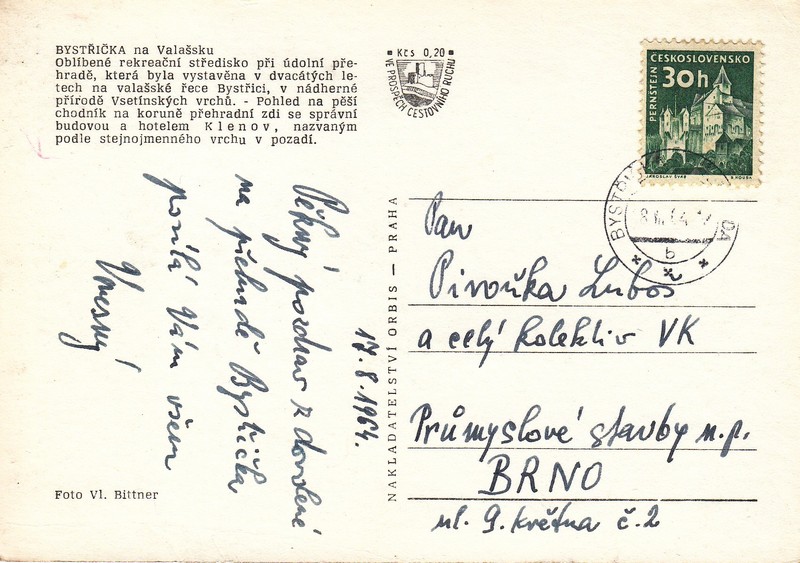 BYSTŘIČKA na Valašsku
Oblíbené rekreační středisko při údolní pře-
hradě, která byla vystavěna v dvacátých le-
tech na valašské řece Bystřici, v nádherné
přírodě Vsetínských vrchů. - Pohled na pěší
chodník na koruně přehradní zdi se správní
budovou a hotelem Klenov, nazvaným
podle stejnojmenného vrchu v pozadí.
Kčs 0,20
VE PROSPĚCH CESTOVNÍHO RUCHU
ČESKOSLOVENSKO
30h
PERNŠTEJN
JAROSLAV ŠVÁB
BYSTŘ
b
17.8.1964.
Pěkný pozdrav z dovolené
na přehradě Bystřička
posílá Vám všem
NAKLADATELSTVÍ ORBIS — PRAHA
Pan
Pivoňka Luboš
a celý kolektiv VK
Průmyslové stavby n.p.
BRNO
ul. 9. května č. 2
Foto Vl. Bittner